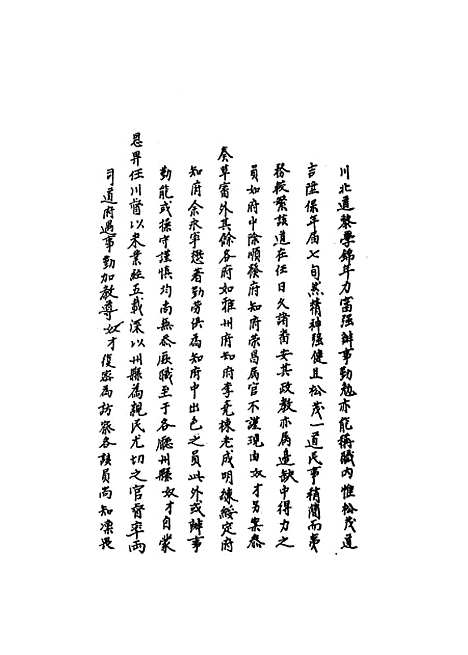 川北道黎學錦年力富强辦事勤勉亦能稱職內惟松茂道
吉陞保年屆七旬然精神强健且松茂一道民事稍簡而夷
務較繁該道在任日久諸畨安其政教亦爲邊缺中得力之
員如府中除順發府知府崇昌居官不謹現由奴才另案叅
奏革審外其餘各府如雅州府知府李堯棟老成明練綏定府
知府余永寧懋著勤勞俱爲知府中出色之員此外或辦事
勤能或操守謹慎均尚無忝厥職至于各廳州縣奴才自蒙
恩畀任川督以來業經五載深以州縣爲親民尤切之官督率兩
司道府遇事勤加教導奴才復密爲訪察各該員尚知凜畏